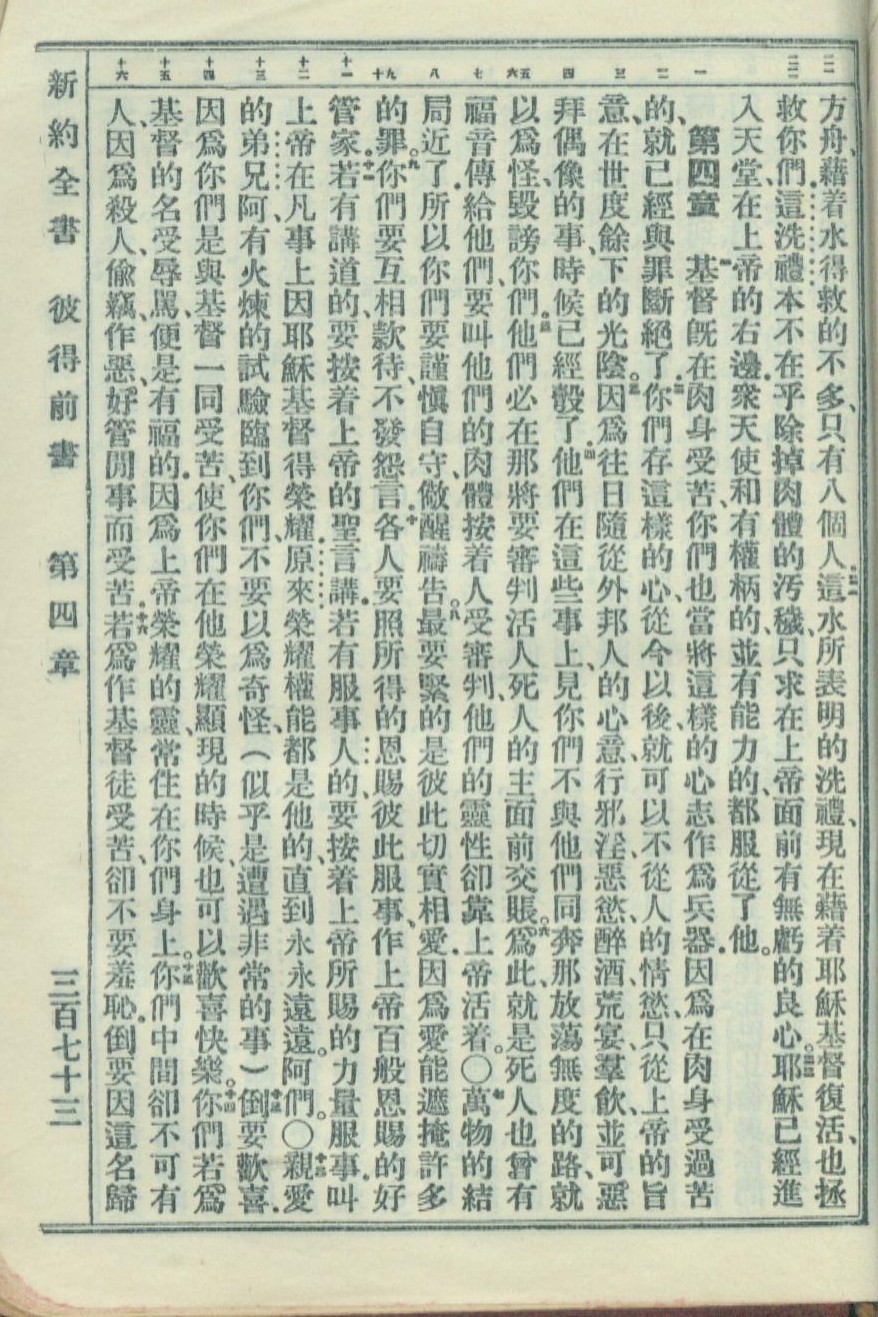 二一 二二
方舟、藉着水得救的不多、只有八個人、二一這水所表明的洗禮、現在藉着耶穌基督復活、也拯
救你們、這洗禮本不在乎除掉肉體的汚穢、只求在上帝面前有無虧的良心。二二耶穌已經進
入天堂、在上帝的右邊、衆天使和有權柄的、並有能力的、都服從了他。
第四章 一基督旣在肉身受苦、你們也當將這樣的心志作爲兵器、因爲在肉身受過苦
的、就已經與罪斷絕了、二你們存這樣的心、從今以後就可以不從人的情慾、只從上帝的旨
意、在世度餘下的光陰。三因爲往日隨從外邦人的心意、行邪淫、惡慾、醉酒、荒宴、羣飲、並可惡
拜偶像的事、時候已經彀了、四他們在這些事上、見你們不與他們同奔那放蕩無度的路、就
以爲怪、毀謗你們、五他們必在那將要審判活人死人的主面前交賬。六爲此就是死人也曾有
福音傳給他們、要叫他們的肉體按着人受審判、他們的靈性卻靠上帝活着。〇七萬物的結
局近了、所以你們要謹愼自守、儆醒禱告。八最要緊的是彼此切實相愛、因爲愛能遮掩許多
的罪。九你們要互相款待、不發怨言、十各人要照所得的恩賜彼此服事、作上帝百般恩賜的好
管家、十一若有講道的、要按着上帝的聖言講、若有服事人的、要按着上帝所賜的力量服事、叫
上帝在凡事上因耶穌基督得榮耀、原來榮耀權能都是他的、直到永永遠遠。阿們。〇十二親愛
的弟兄阿、有火煉的試驗臨到你們、不要以爲奇怪、(似乎是遭遇非常的事)十三倒要歡喜、
因爲你們是與基督一同受苦、使你們在他榮耀顯現的時候、也可以歡喜快樂。十四你們若爲
基督的名受辱罵、便是有福的、因爲上帝榮耀的靈、常住在你們身上。十五你們中間卻不可有
人因爲殺人、偸竊、作惡、好管閒事而受苦、十六若爲作基督徒受苦、卻不要羞恥、倒要因這名歸
一 二 三 四 五六 七 八 九十 十一 十二 十三 十四 十五 十六
新約全書 彼得前書 第四章 三百七十三